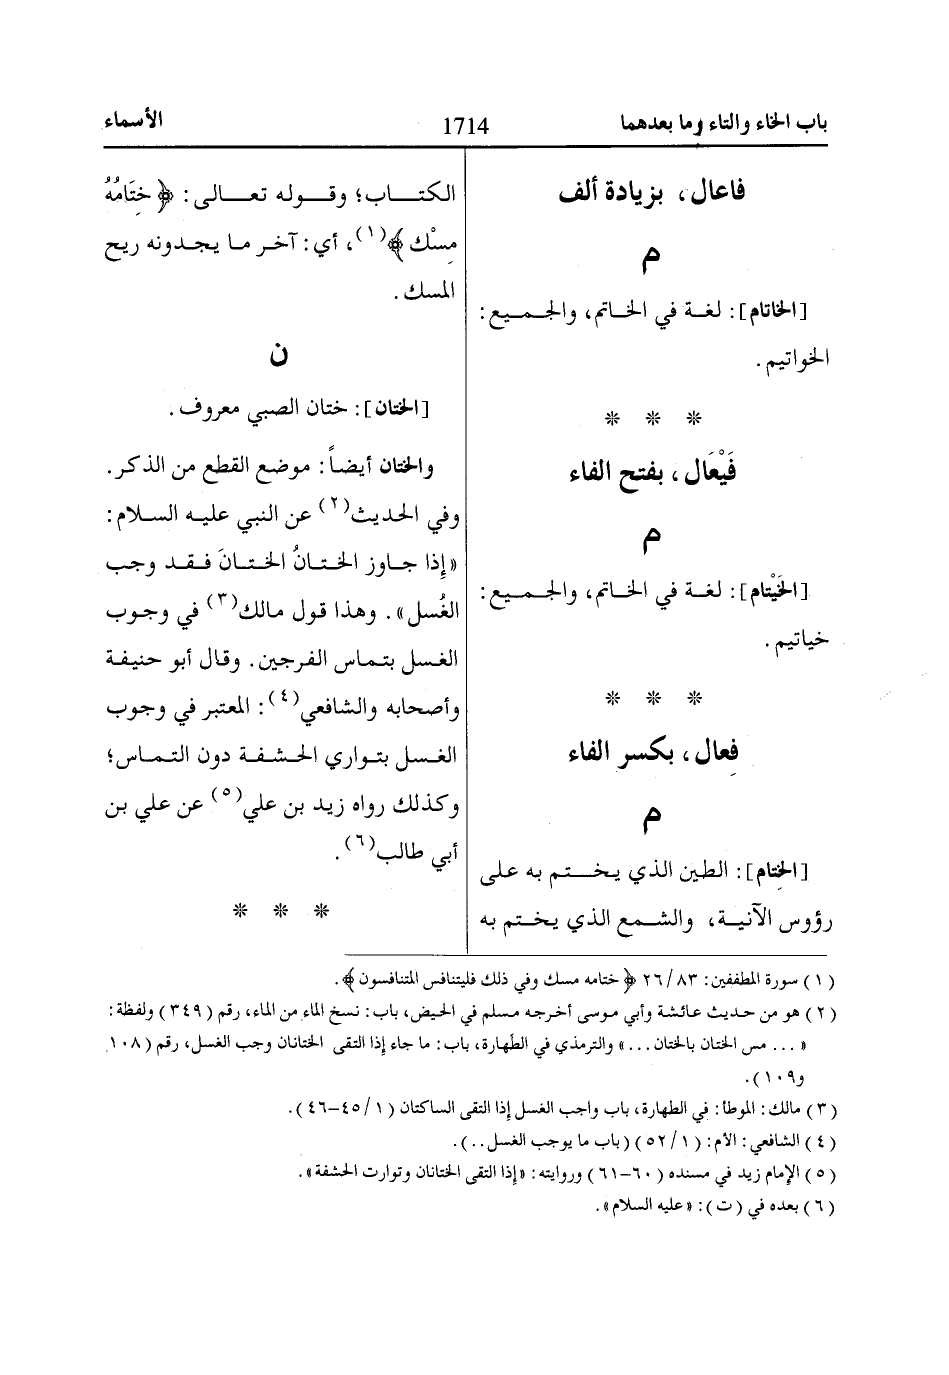 باب الخاء والتاء وما بعدهما
1714
الأسماء
فاعال، بزيادة ألف
م
[الخاتام]: لغة في الخاتم، والجميع:
الخواتيم.
* * *
فَيْعَال، بفتح الفاء
م
[الخَيْتام]: لغة في الخاتم، والجميع:
خياتيم.
* * *
فِعال، بكسر الفاء
م
[الخِتام]: الطين الذي يختم به على
رؤوس الآنية، والشمع الذي يختم به
الكتاب؛ وقوله تعالى: ﴿خِتَامُهُ
مِسْك﴾(١)، أي: آخر ما يجدونه ريح
المسك.
ن
[الختان]: ختان الصبي معروف.
والختان أيضاً: موضع القطع من الذكر.
وفي الحديث(٢) عن النبي عليه السلام:
«إذا جاوز الختانُ الختانَ فقد وجب
الغُسل». وهذا قول مالك(٣) في وجوب
الغسل بتماس الفرجين. وقال أبو حنيفة
وأصحابه والشافعي(٤): المعتبر في وجوب
الغسل بتواري الحشفة دون التماس؛
وكذلك رواه زيد بن علي(٥) عن علي بن
أبي طالب(٦).
* * *
(١) سورة المطففين: ٢٦/٨٣ ﴿ختامه مسك وفي ذلك فليتنافس المتنافسون﴾.
(٢) هو من حديث عائشة وأبي موسى أخرجه مسلم في الحيض، باب: نسخ الماء من الماء، رقم (٣٤٩) ولفظة:
«... مس الختان بالختان...» والترمذي في الطهارة، باب: ما جاء إذا التقى الختانان وجب الغسل، رقم (١٠٨
و١٠٩).
(٣) مالك: الموطأ: في الطهارة، باب واجب الغسل إذا التقى الساكتان (٤٥/١-٤٦).
(٤) الشافعي: الأم: (٥٢/١) (باب ما يوجب الغسل..).
(٥) الإمام زيد في مسنده (٦٠-٦١) وروايته: «إذا التقى الختانان وتوارت الحشفة».
(٦) بعده في (ت): «عليه السلام».